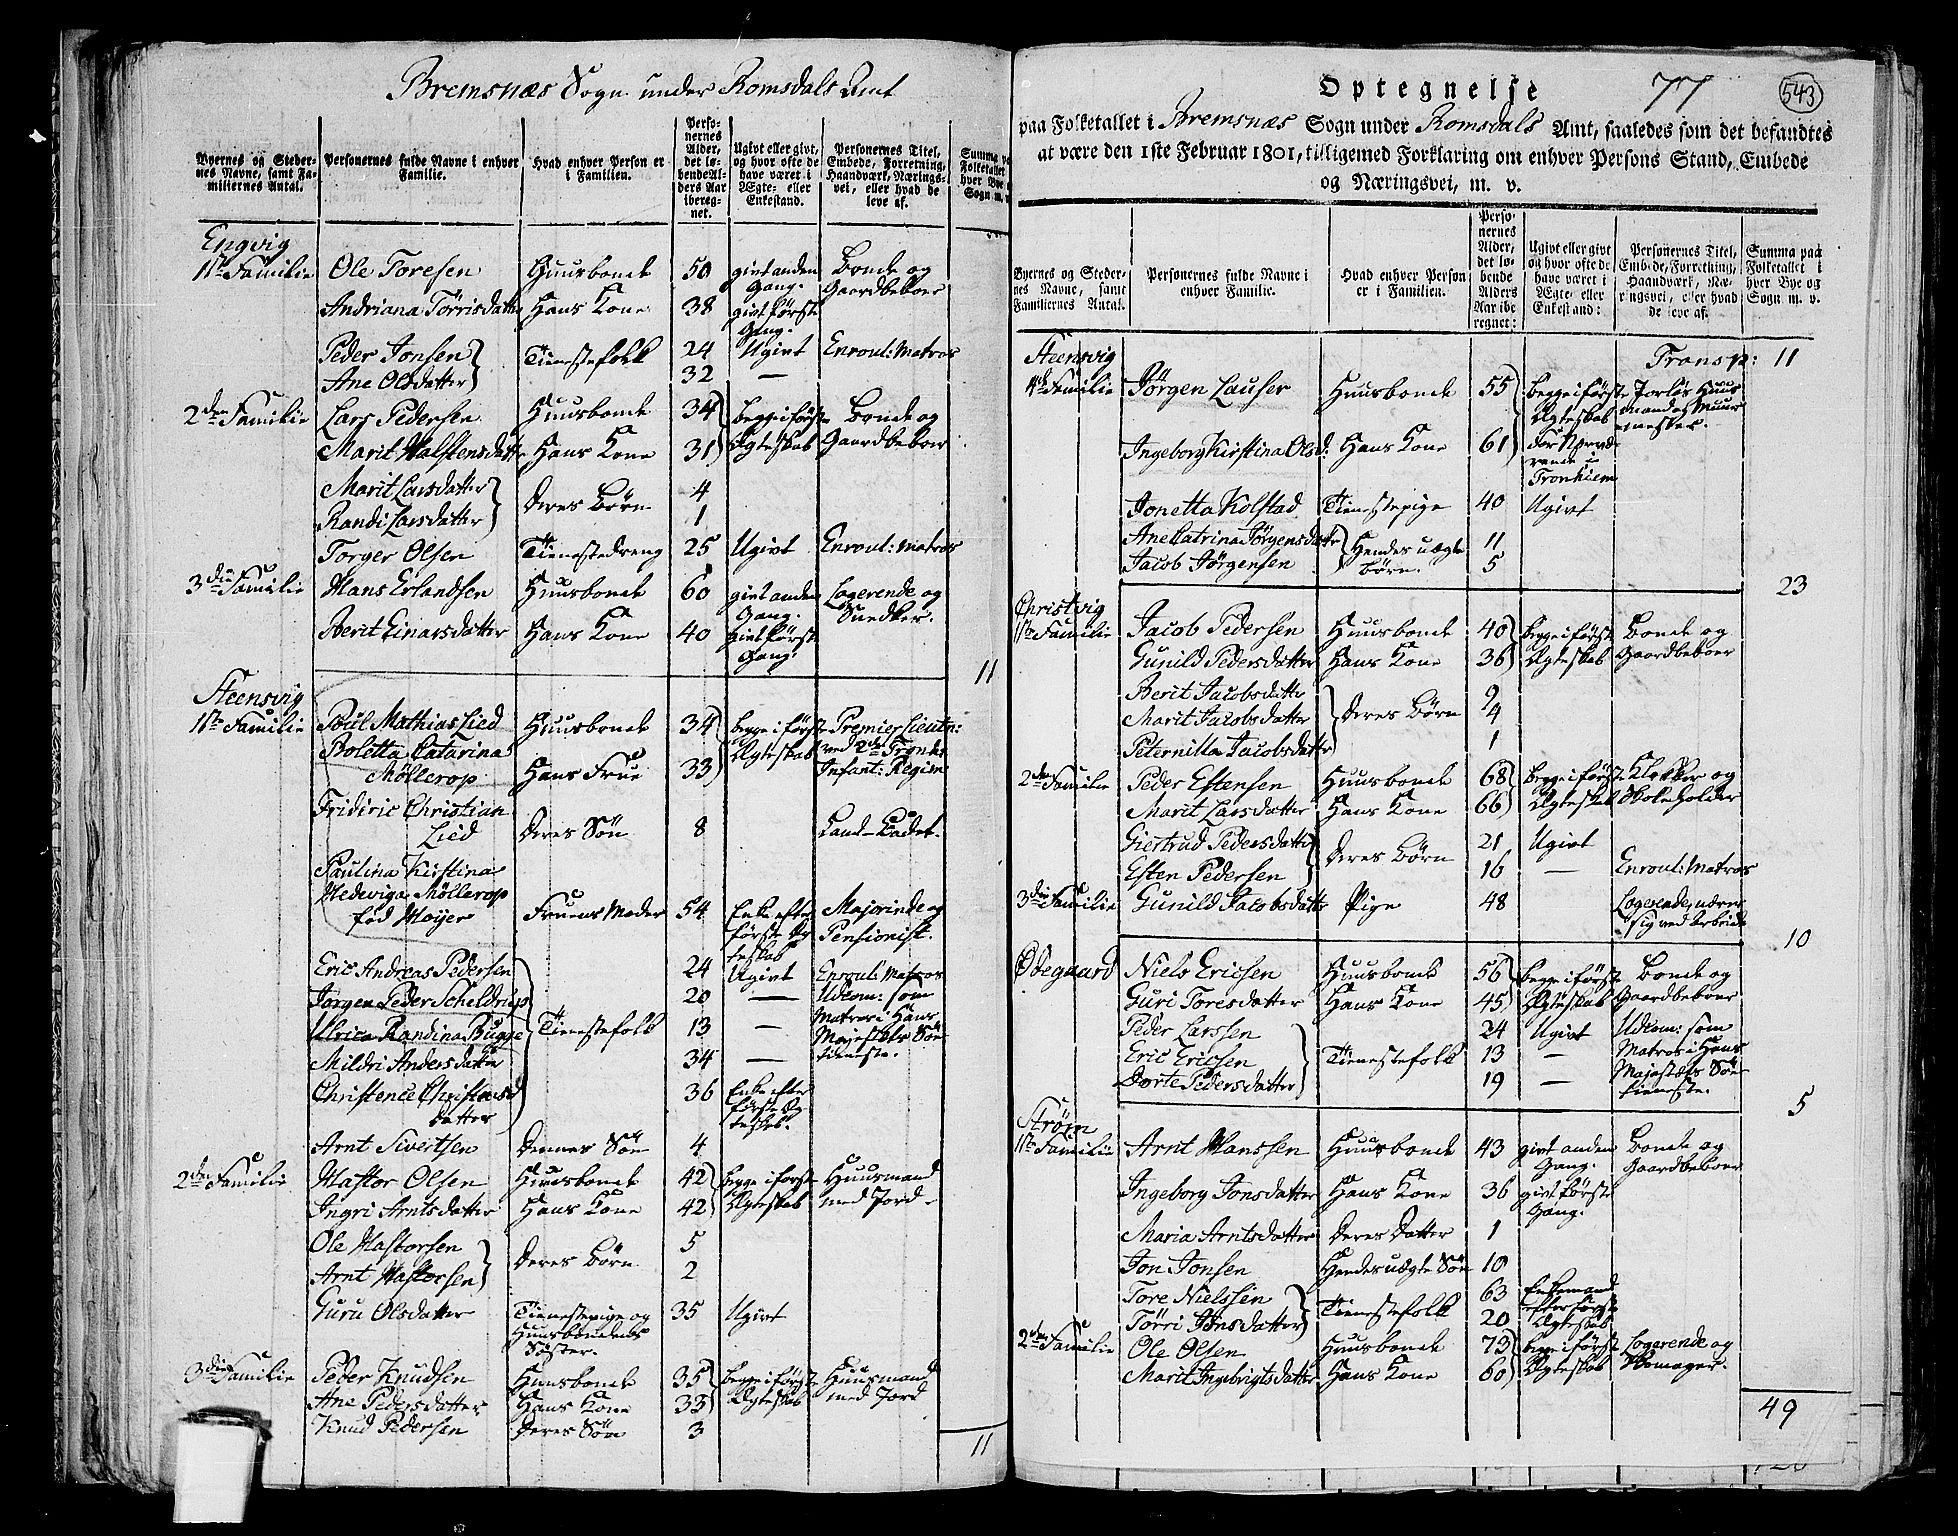 Bremsnæs Sogn under Romsdals Amt
Byernes og Stedernes Navne, samt Familiernes Antal.
Personernes fulde Navne i enhver Familie.
Hvad enhver Person er i Familien.
Personernes Alder, det løbende Alders Aar iberegnet.
Ugivt eller givt, og hvor ofte de have været i Ægte- eller Enkestand.
Personernes Titel, Embede, Forretning, Haandværk, Næringsvei, eller hvad de leve af.
Engvig
1ste Familie Ole Toresen Huusbonde 50 givt anden Gang. Bonde og Gaardbeboer
Andriana Törrisdatter Hans Kone 38 givt förste Gang.
Peder Jonsen } Tienestefolk 24 Ugivt Enroul: Matros
Ane Olsdatter } 32 —
2den Familie Lars Pedersen Huusbonde 34 Begge i förste Ægteskab Bonde og Gaardbeboer
Marit Halstensdatter Hans Kone 31
Marit Larsdatter } Deres Börn 4
Randi Larsdatter } 1
Torger Olsen Tienestedreng 25 Ugivt Enroul: Matros
3die Familie Hans Erlandsen Huusbonde 60 givt anden Gang. Logerende og Snedker.
Berit Einarsdatter Hans Kone 40 givt förste Gang.
11
Steensvig
1ste Familie Poul Mathias Lied Huusbonde 34 Begge i förste Ægteskab Premier Lieutn: ved 2det Tryndes Infant: Regim
Boletta Catarina Möllerop Hans Frue 33
Fridiric Christian Lied Deres Sön 8 Land-Cadet.
Paulina Kirstina Hedeviga Möllerop fød Høyer Fruens Moder 54 Enke efter förste Ægteskab Majorinde og Pensionist.
Eric Andreas Pedersen 24 Ugivt Enroul: Matros
Jørgen Peder Scheldrup 20 — Udcom: som
Ulrica Randina Bugge } Tienestefolk 13 — Matros i Hans Majestets Sön tieneste.
Mildri Andersdatter 34 —
Christence Christensdatter 36 Enke efter förste Ægteskab.
Arnt Sivertsen Dennes Sön 4
2den Familie Hastor Olsen Huusbonde 42 Begge i förste Ægteskab Huusmand med Jord
Ingri Arntsdatter Hans Kone 42
Ole Hastorsen } Deres Börn 5
Arnt Hastorsen } 2
Guru Olsdatter Tienestepige og Huusbondens Söster. 35 Ugivt
3die Familie Peder Knudsen Huusbonde 35 Begge i förste Ægteskab Huusmand med Jord
Ane Pedersdatter Hans Kone 33
Knud Pedersen Deres Sön 3
11
Optegnelse 77 543
paa Folketallet i Bremsnæs Sogn under Romsdals Amt, saaledes som det befandtes
at være den 1ste Februar 1801, tilligemed Forklaring om enhver Persons Stand, Embede
og Næringsvei, m. v.
Byernes og Stedernes Navne, samt Familiernes Antal.
Personernes fulde Navne i enhver Familie.
Hvad enhver Person er i Familien.
Personernes Alder, det løbende Alders Aar iberegnet:
Ugivt eller givt og hvor ofte de have været i Ægte- eller Enkestand:
Personernes Titel, Embede, Forretning, Haandværk, Næringsvei, eller hvad de leve af.
Summa paa Folketallet i hver Bye og Sogn m. v.
Steensvig Transp: 11
4de Familie Jörgen Lauser Huusbonde 55 Begge i förste Ægteskab Jorlös Huusmand og Muurmester.
Ingeborg Kirstina Olsd: Hans Kone 61
Tronhiem
Jonetta Kolstad Tienestepige 40 Ugivt
Ane Catrina Jörgensdatter } Hendes uægte Börn. 11
Jacob Jörgensen } 5
23
Christvig
1ste Familie Jacob Pedersen Huusbonde 40 Begge i förste Ægteskab Bonde og Gaardbeboer
Gunild Pedersdatter Hans Kone 36
Berit Jacobsdatter 9
Marit Jacobsdatter } Deres Börn 4
Peternilla Jacobsdatter 1
2den Familie Peder Estensen Huusbonde 68 Begge i förste Ægteskab Klokker og Skoleholder
Marit Larsdatter Hans Kone 66
Giertrud Pedersdatter } Deres Börn 21 Ugivt
Esten Pedersen } 16 — Enroul: Matros
3die Familie Gunild Jacobsdatter Pige 48 Logerende, nærer sig ved Arbeide
10
Ödegaard Niels Ericsen Huusbonde 56 Begge i förste Ægteskab Bonde og Gaardbeboer
Guri Toresdatter Hans Kone 45
Peder Larssen 24 Ugivt Udcom: som
Eric Ericsen } Tienestefolk 13 — Matros i Hans
Dorte Pedersdatter 19 — Majestæts Sön tieneste.
5
Ström
1ste Familie Arnt Hanssen Huusbonde 43 givt anden Gang. Bonde og Gaardbeboer
Ingeborg Jonsdatter Hans Kone 36 givt förste Gang.
Maria Arntsdatter Deres Datter 1
Jon Jonsen Hendes uægte Sön 10
Tore Nielssen } Tienestefolk 63 Enkemand efter förste Ægteskab
Törri Jönsdatter } 20
2den Familie Ole Olsen Huusbonde 73 Begge i förste Ægteskab Logerende og Skomager.
Marit Ingebrigtsdatter Hans Kone 60
49